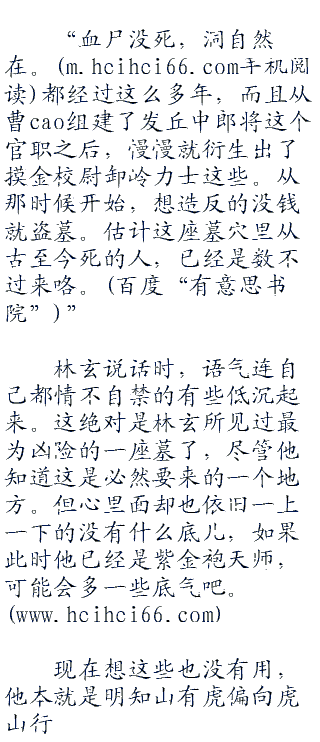 “血尸没死，洞自然
在。(m.hcihci66.com手机阅
读)都经过这么多年，而且从
曹cao组建了发丘中郎将这个
官职之后，慢慢就衍生出了
摸金校尉卸岭力士这些。从
那时候开始，想造反的没钱
就盗墓。估计这座墓穴里从
古至今死的人，已经是数不
过来咯。(百度“有意思书
院”)”
林玄说话时，语气连自
己都情不自禁的有些低沉起
来。这绝对是林玄所见过最
为凶险的一座墓了，尽管他
知道这是必然要来的一个地
方。但心里面却也依旧一上
一下的没有什么底儿，如果
此时他已经是紫金袍天师，
可能会多一些底气吧。
(www.hcihci66.com)
现在想这些也没有用，
他本就是明知山有虎偏向虎
山行